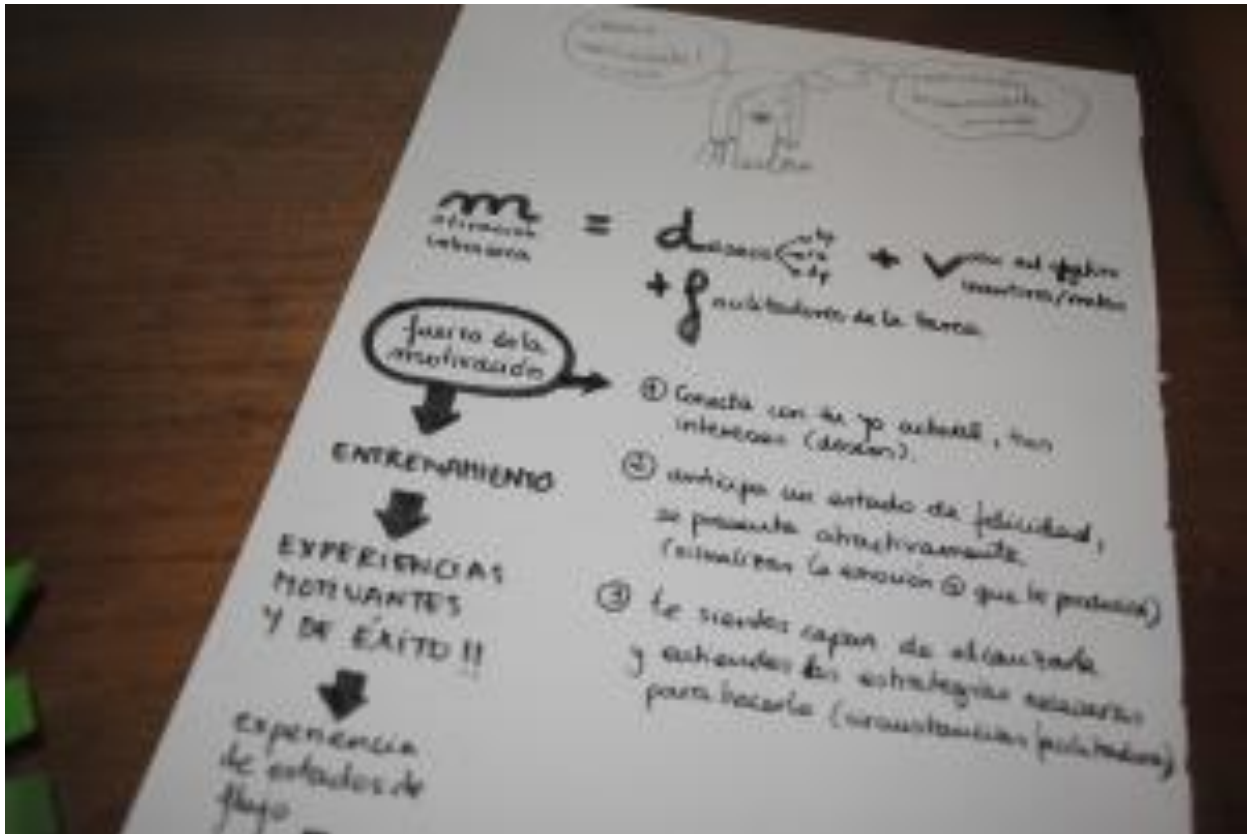 motivación
intrínseca
=
deseos
+
valor del objetivo
incentivos/metas
+ facilitadores de la tarea
fuerza de la
motivación
ENTRENAMIENTO
EXPERIENCIAS
MOTIVANTES
Y DE ÉXITO !!
experiencia
de estados de
flujo
① Conecta con tu yo actual, tus
intereses (deseos).
② anticipa un estado de felicidad,
se presenta atractivamente
(visualizas la emoción que te producirá)
③ te sientes capaz de alcanzarla
y entiendes las estrategias necesarias
para hacerla (circunstancias facilitadoras)